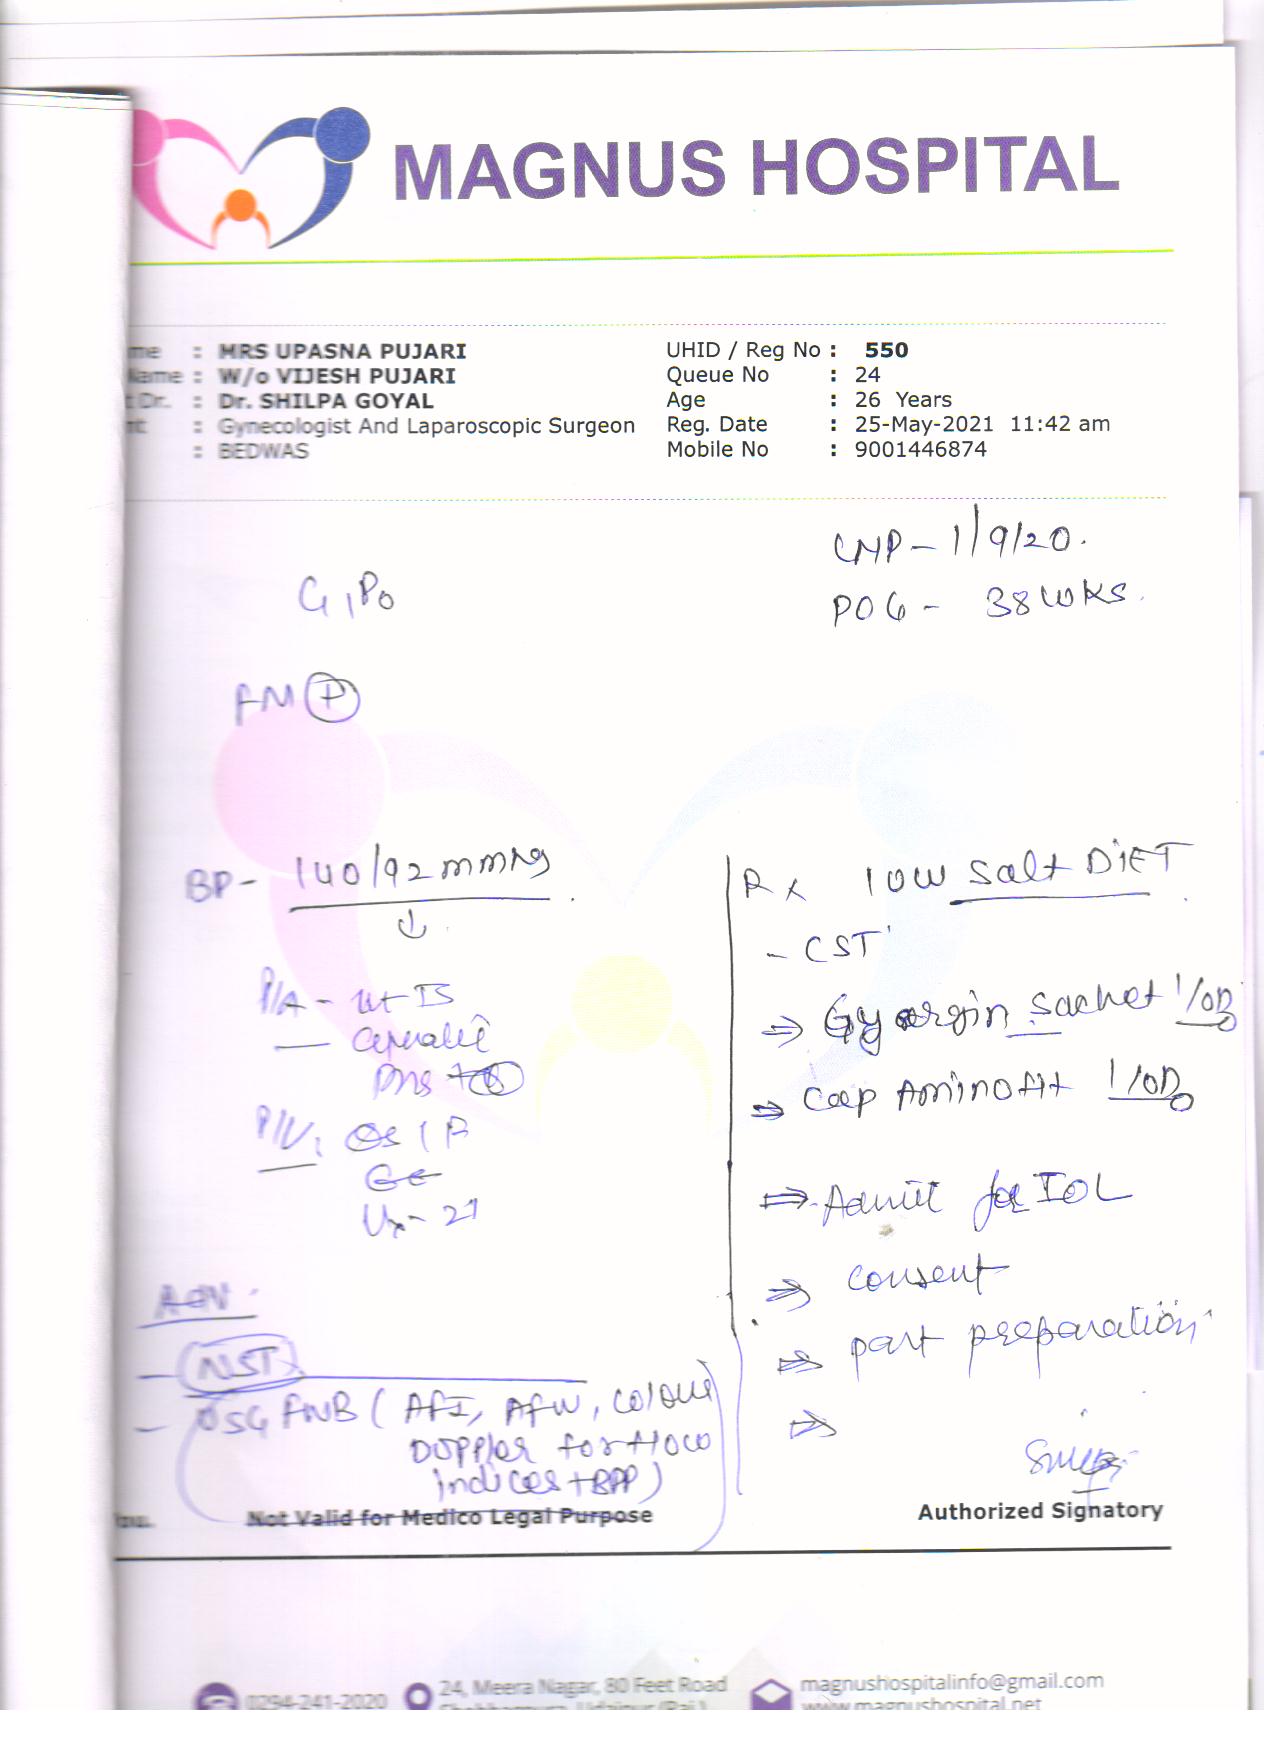 MAGNUS HOSPITAL
me : MRS UPASNA PUJARI
Name : W/o VIJESH PUJARI
t Dr. : Dr. SHILPA GOYAL
nt : Gynecologist And Laparoscopic Surgeon
: BEDWAS
UHID / Reg No : 550
Queue No : 24
Age : 26 Years
Reg. Date : 25-May-2021 11:42 am
Mobile No : 9001446874
LMP - 1/9/20.
POG - 38 WKS.
G1P0
FM (P)
BP - 140/92 mmHg
P/A - ut TS
Cephalic
P/V. Os 1 F
Adv.
- NST
- USG FWB (AFI, AFW, colour
Doppler for
indices + BPP)
Rx low salt DIET
- CST
⇒ Gyargin sachet 1/OD
⇒ Cap Aminofit 1/OD
⇒ Admit for IOL
⇒ consent
⇒ part preparation
⇒
Not Valid for Medico Legal Purpose
Authorized Signatory
0294-241-2020
24, Meera Nagar, 80 Feet Road
Shobhagpura, Udaipur (Raj.)
magnushospitalinfo@gmail.com
www.magnushospital.net